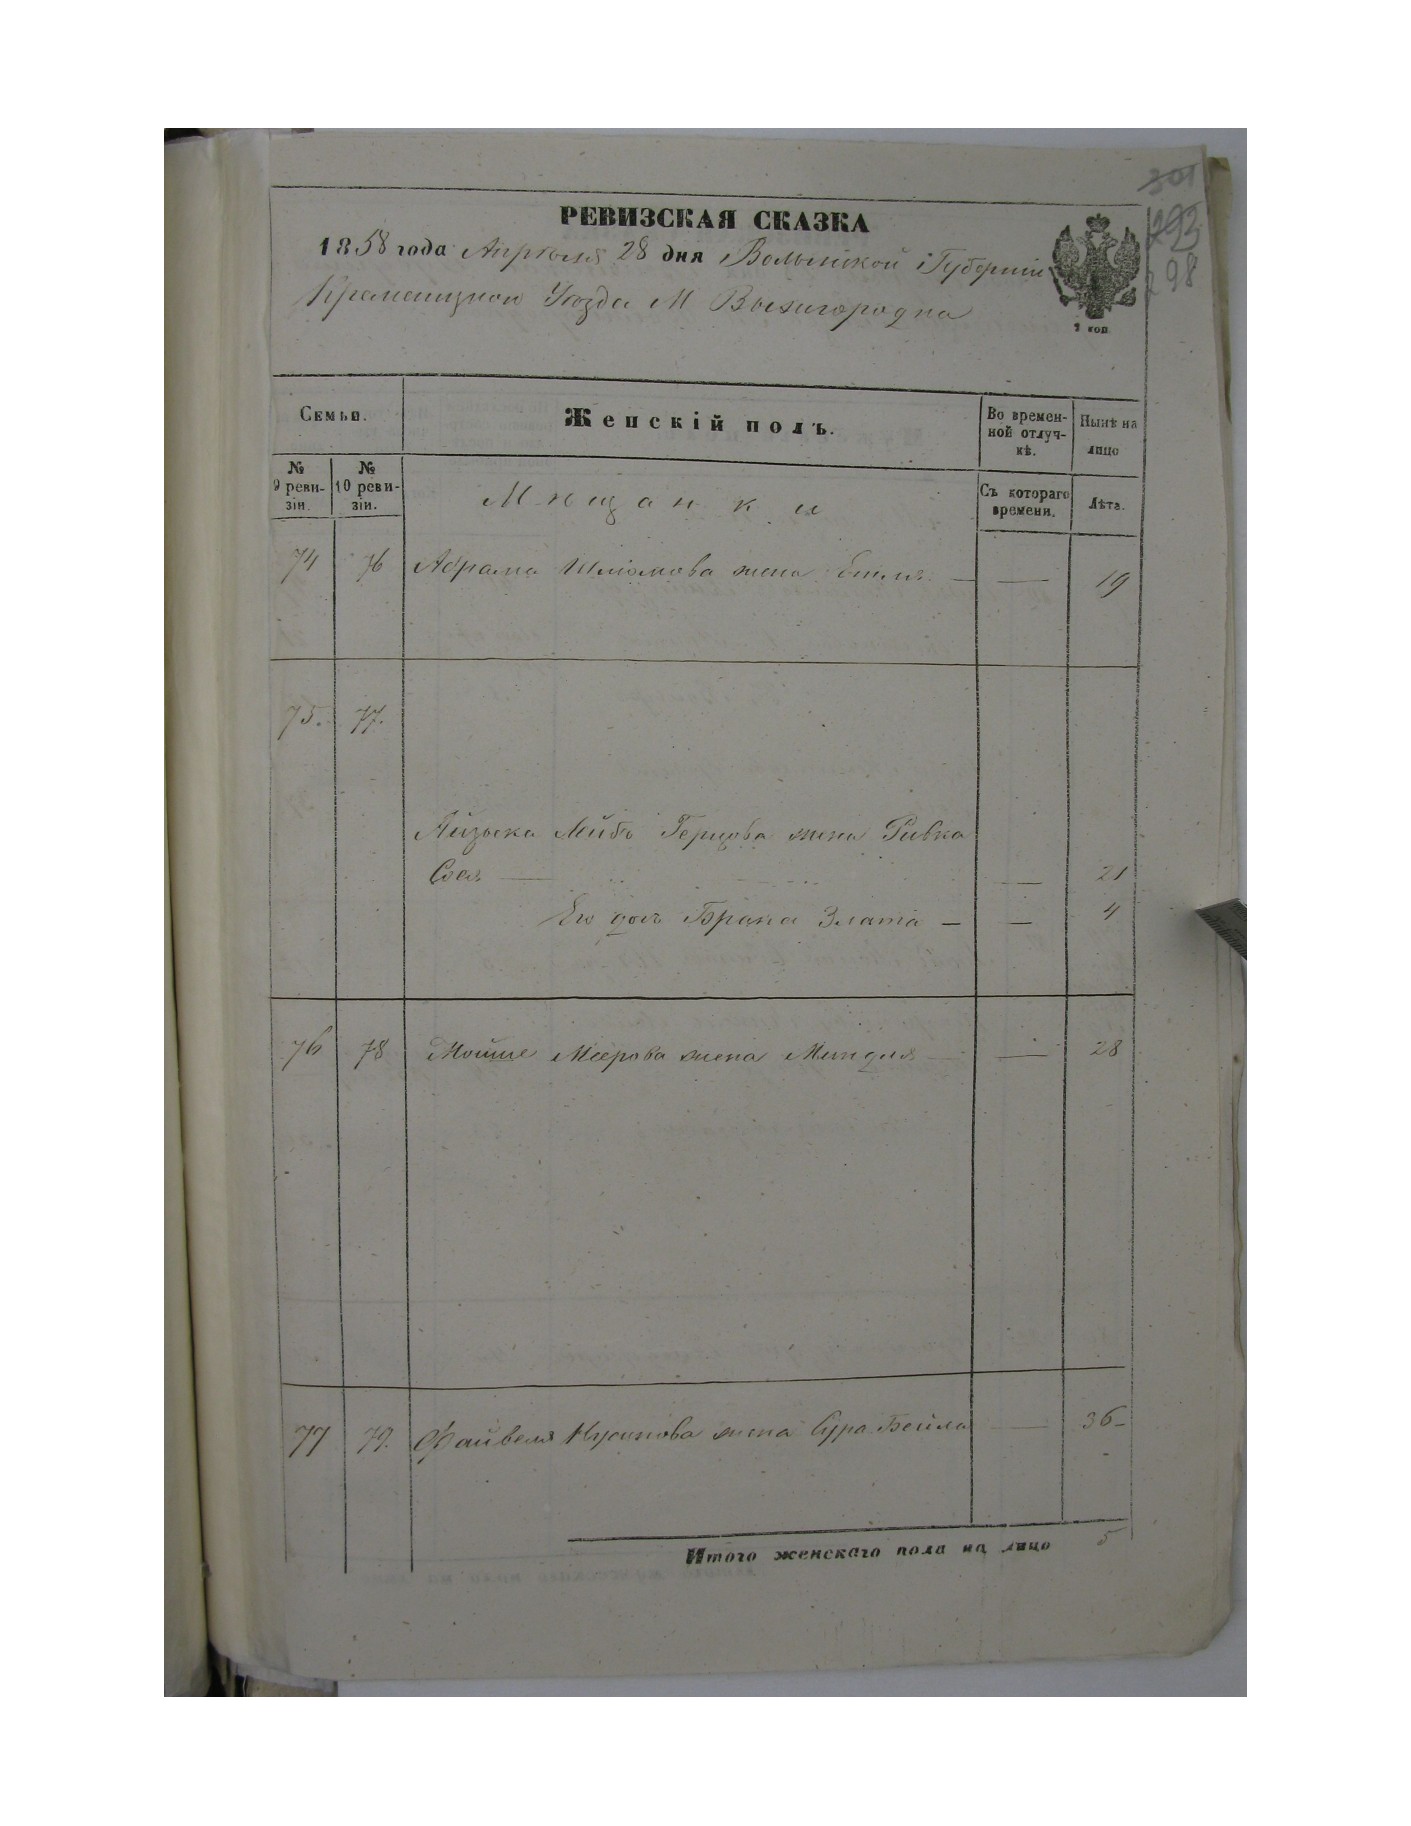 301
292
298
РЕВИЗСКАЯ СКАЗКА
1858 года Апреля 28 дня Волынской Губернии
Кременецкого Уезда М Вышгородка
1 коп
Семьи.
Женскій полъ.
Во времен-
ной отлуч-
кѣ.
Нынѣ на
лицо
№
9 реви-
зіи.
№
10 реви-
зіи.
Съ котораго
времени.
Лѣта.
Мѣщанки
74 76 Абрама Шлiомова жена — — 19
75. 77.
Айзыка Лейбъ Герцова жена Ривка
Сося — — 21
Его доч Брана Злата — — 4
76 78 Мойше Меерова жена Миндля — — 28
77 79. Файвеля Нусинова жена Сура Бейла — 36-
Итого женскаго пола на лицо 5